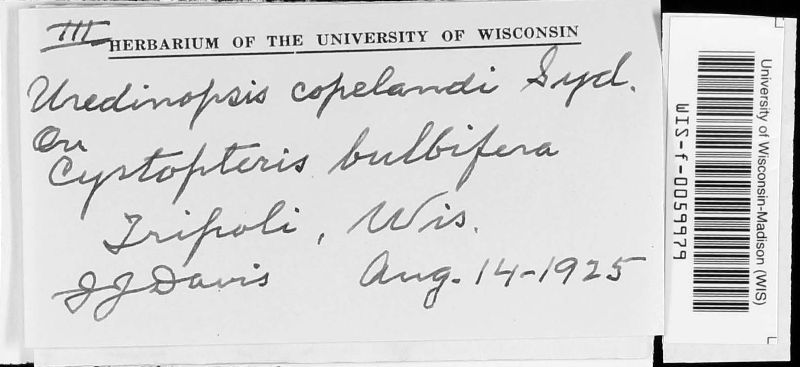 III
HERBARIUM OF THE UNIVERSITY OF WISCONSIN
Uredinopsis copelandi Syd.
On
Cystopteris bulbifera
Tripoli, Wis.
JJ Davis Aug. 14-1925
University of Wisconsin-Madison (WIS)
WIS-f-0059979